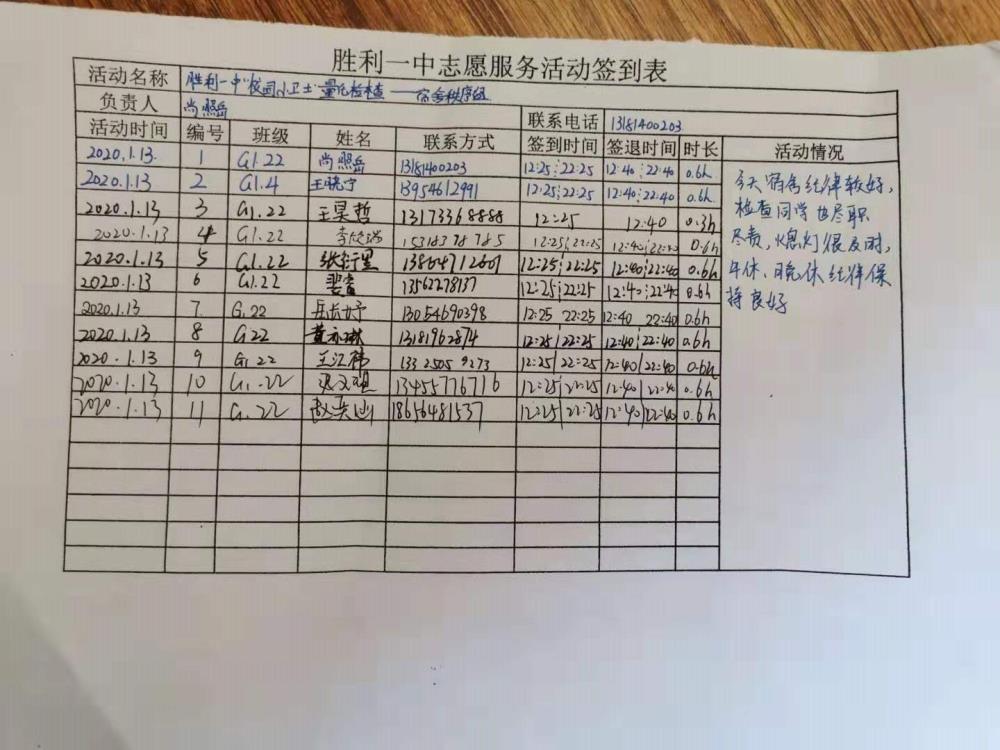 胜利一中志愿服务活动签到表
活动名称 胜利一中"校园小卫士"量化检查——宿舍秩序组
负责人 尚熙岳 联系电话 13181400203
活动时间 编号 班级 姓名 联系方式 签到时间 签退时间 时长 活动情况
2020.1.13. 1 G1.22 尚熙岳 13181400203 12:25 22:25 12:40 22:40 0.6h
2020.1.13 2 G1.4 王晓宁 13954612991 12:25 22:25 12:40 22:40 0.6h
2020.1.13 3 G1.22 王昊哲 13173368888 12:25 12:40 0.3h
2020.1.13 4 G1.22 15318378785 12:25 22:25 12:40 22:40 0.6h
2020.1.13 5 G1.22 13864712601 12:25 22:25 12:40 22:40 0.6h
2020.1.13 6 G1.22 13562278137 12:25 22:25 12:40 22:40 0.6h
2020.1.13 7 G.22 13054690398 12:25 22:25 12:40 22:40 0.6h
2020.1.13 8 G22 董亦琳 13181962874 12:25 22:25 12:40 22:40 0.6h
2020.1.13 9 G1.22 王汇祎 133 2505 9273 12:25/22:25 12:40/22:40 0.6h
2020.1.13 10 G1.22 13455776716 12:25 22:25 12:40/22:40 0.6h
2020.1.13 11 G.22 18656481537 12:25 22:25 12:40 22:40 0.6h
今天宿舍纪律较好,
检查同学也尽职
尽责,熄灯很及时,
午休、晚休纪律保
持良好